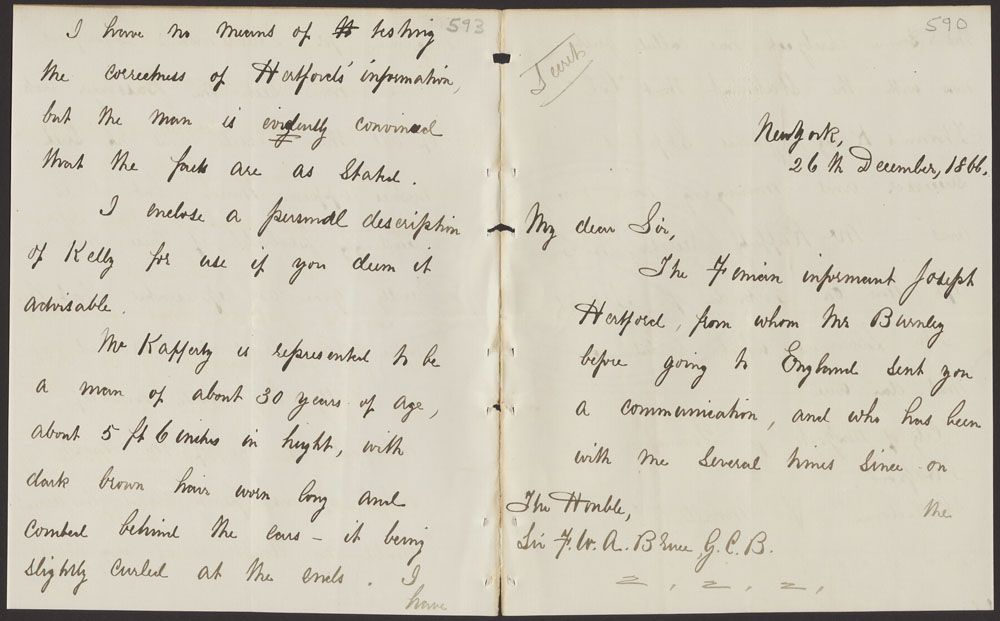 593
I have no means of testing
the correctness of Hertford's information,
but the man is evidently convinced
that the facts are as stated.
I enclose a personal description
of Kelly for use if you deem it
advisable.
Mc Kafferty is represented to be
a man of about 30 years of age,
about 5 ft 6 inches in height, with
dark brown hair worn long and
combed behind the ears – it being
slightly curled at the ends. I
have
590
Secret
New York,
26th December, 1866.
My dear Sir,
The Fenian informant Joseph
Hertford, from whom Mr Burnley
before going to England sent you
a communication, and who has been
with me several times since on
the
The Honble,
Sir F. W. A. Bruce G.C.B.